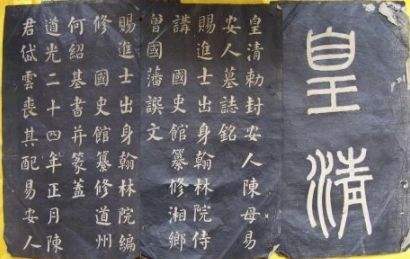 皇清
皇清勅封安人陳母易
安人墓誌銘
賜進士出身翰林院侍
講　國史館纂修湘鄉
曾國藩譔文
賜進士出身翰林院編
修　國史館纂修道州
何紹基書并篆蓋
道光二十四年正月陳
君岱雲喪其配易安人